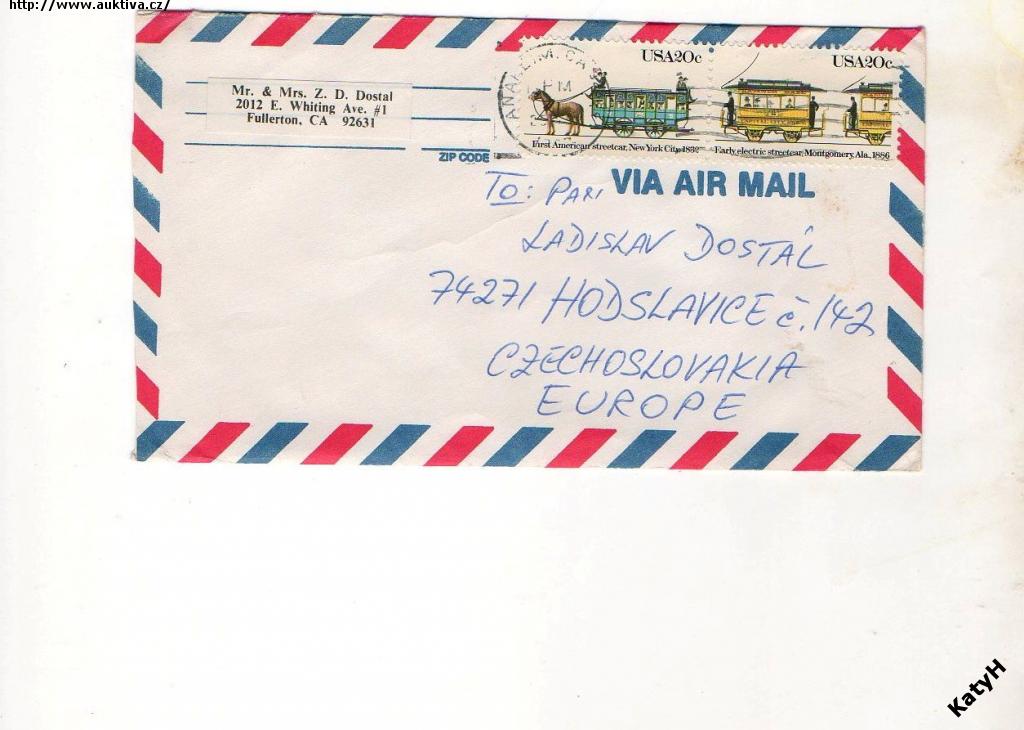 http://www.auktiva.cz/
Mr. & Mrs. Z. D. Dostal
2012 E. Whiting Ave. #1
Fullerton, CA 92631
ZIP CODE
ANAHEIM, CA
PM
USA20c
First American streetcar, New York City, 1832
USA20c
Early electric streetcar, Montgomery, Ala., 1886
VIA AIR MAIL
TO: PANI
LADISLAV DOSTÁL
74271 HODSLAVICE č. 142
CZECHOSLOVAKIA
EUROPE
KatyH